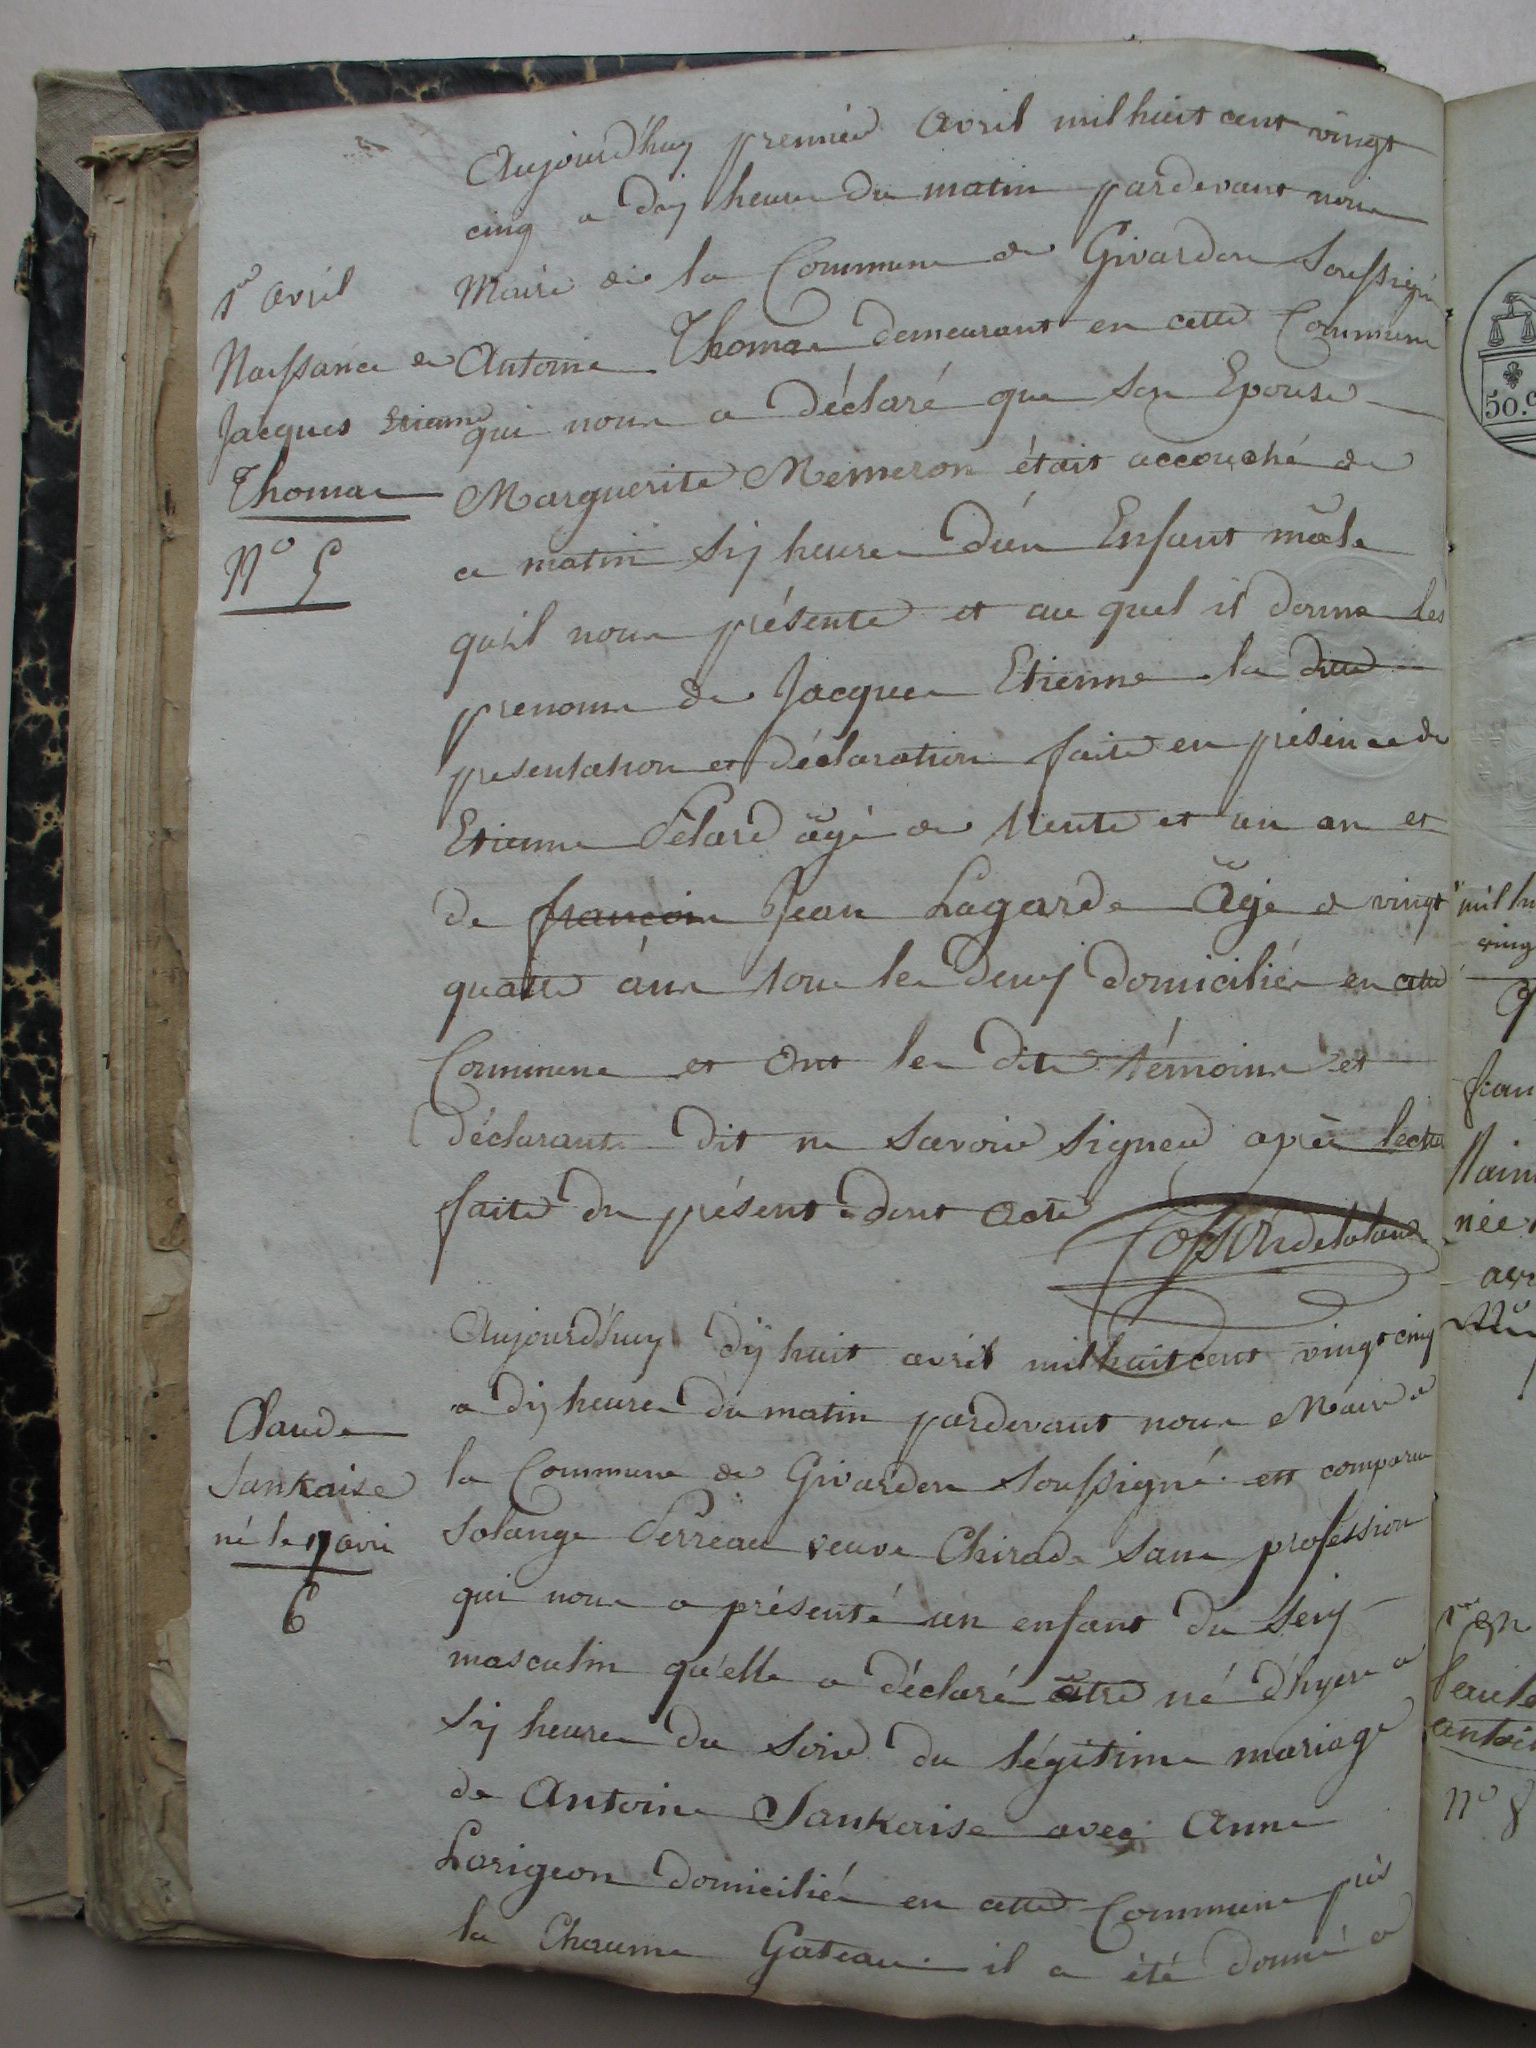 Aujourd'huy premier avril mil huit cent vingt
cinq a dix heures du matin pardevant nous
Maire de la Commune de Givardon Soussigné
1er avril
Naissance de
Jacques Etienne
Thomas
N° 5
Antoine Thomas demeurant en cette Commune
qui nous a déclaré que son Epouse
Marguerite Memeron était accouché de
ce matin six heures d'un Enfant mâle
qu'il nous présente et au quel il donne les
prenoms de Jacques Etienne la ditte
presentation et déclaration faite en présence de
Etienne Pelard âgé de trente et un an et
de françois Jean Lagarde âgé de vingt
quatre ans tous les deux domiciliés en cette
Commune et ont les dits témoins et
déclarants dit ne savoir signer après lectu
faite du présent dont acte
Aujourd'huy dix huit avril mil huit cent vingt cinq
a dix heures du matin pardevant nous Maire de
la Commune de Givardon Soussigné est comparue
Claude
Sankaise
né le 17 avri
6
Solange Perreau veuve Chirade sans profession
qui nous a présenté un enfant du sexe
masculin qu'elle a déclaré être né d'hyers a
six heures du soir du légitime mariage
de Antoine Sankaise avec Anne
Larigeon domiciliés en cette Commune près
la Chaume Gateau il a été donné a
50.c
mil hu
ving
née
N° 8